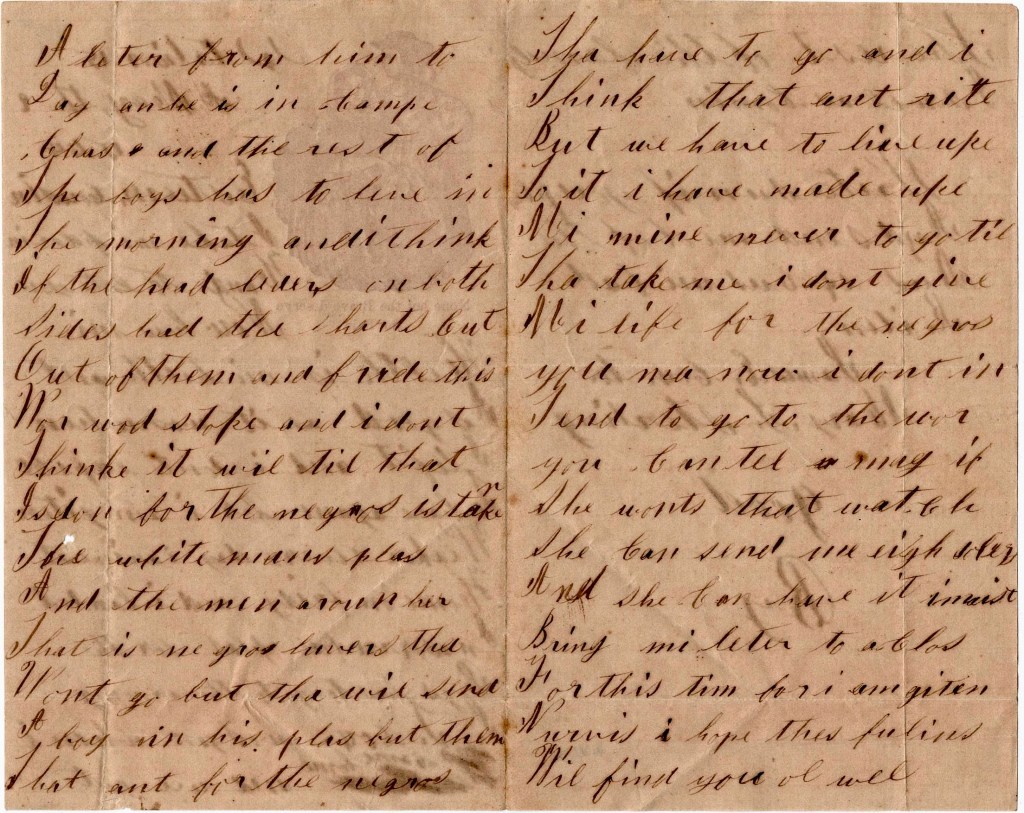 A leter from him to
Day an he is in Campe
Chas and the rest of
The boys has to leve in
The morning and i think
If the head leders on both
Sides had the harts cut
Out of them and fride this
Wor wod stope and i dont
Thinke it wil til that
Is don for the negros is taken
The white mans plas
And the men aroun her
That is negros luvers tha
Wont go but tha wil send
A boy in his plas but them
That ant for the negros
Tha have to go and i
Think that ant rite
But we have to live upe
To it i have made upe
Mi mine never to go til
Tha take me i dont give
Mi life for the negros
you ma now i dont in
Tend to go to the wor
you Can tel mag if
She wonts that watch
She Can send me eigh
And she Can have it i
Bring mi leter to a Clos
For this tim for i am giten
Nurvis i hope thes
Wil find you ol wel